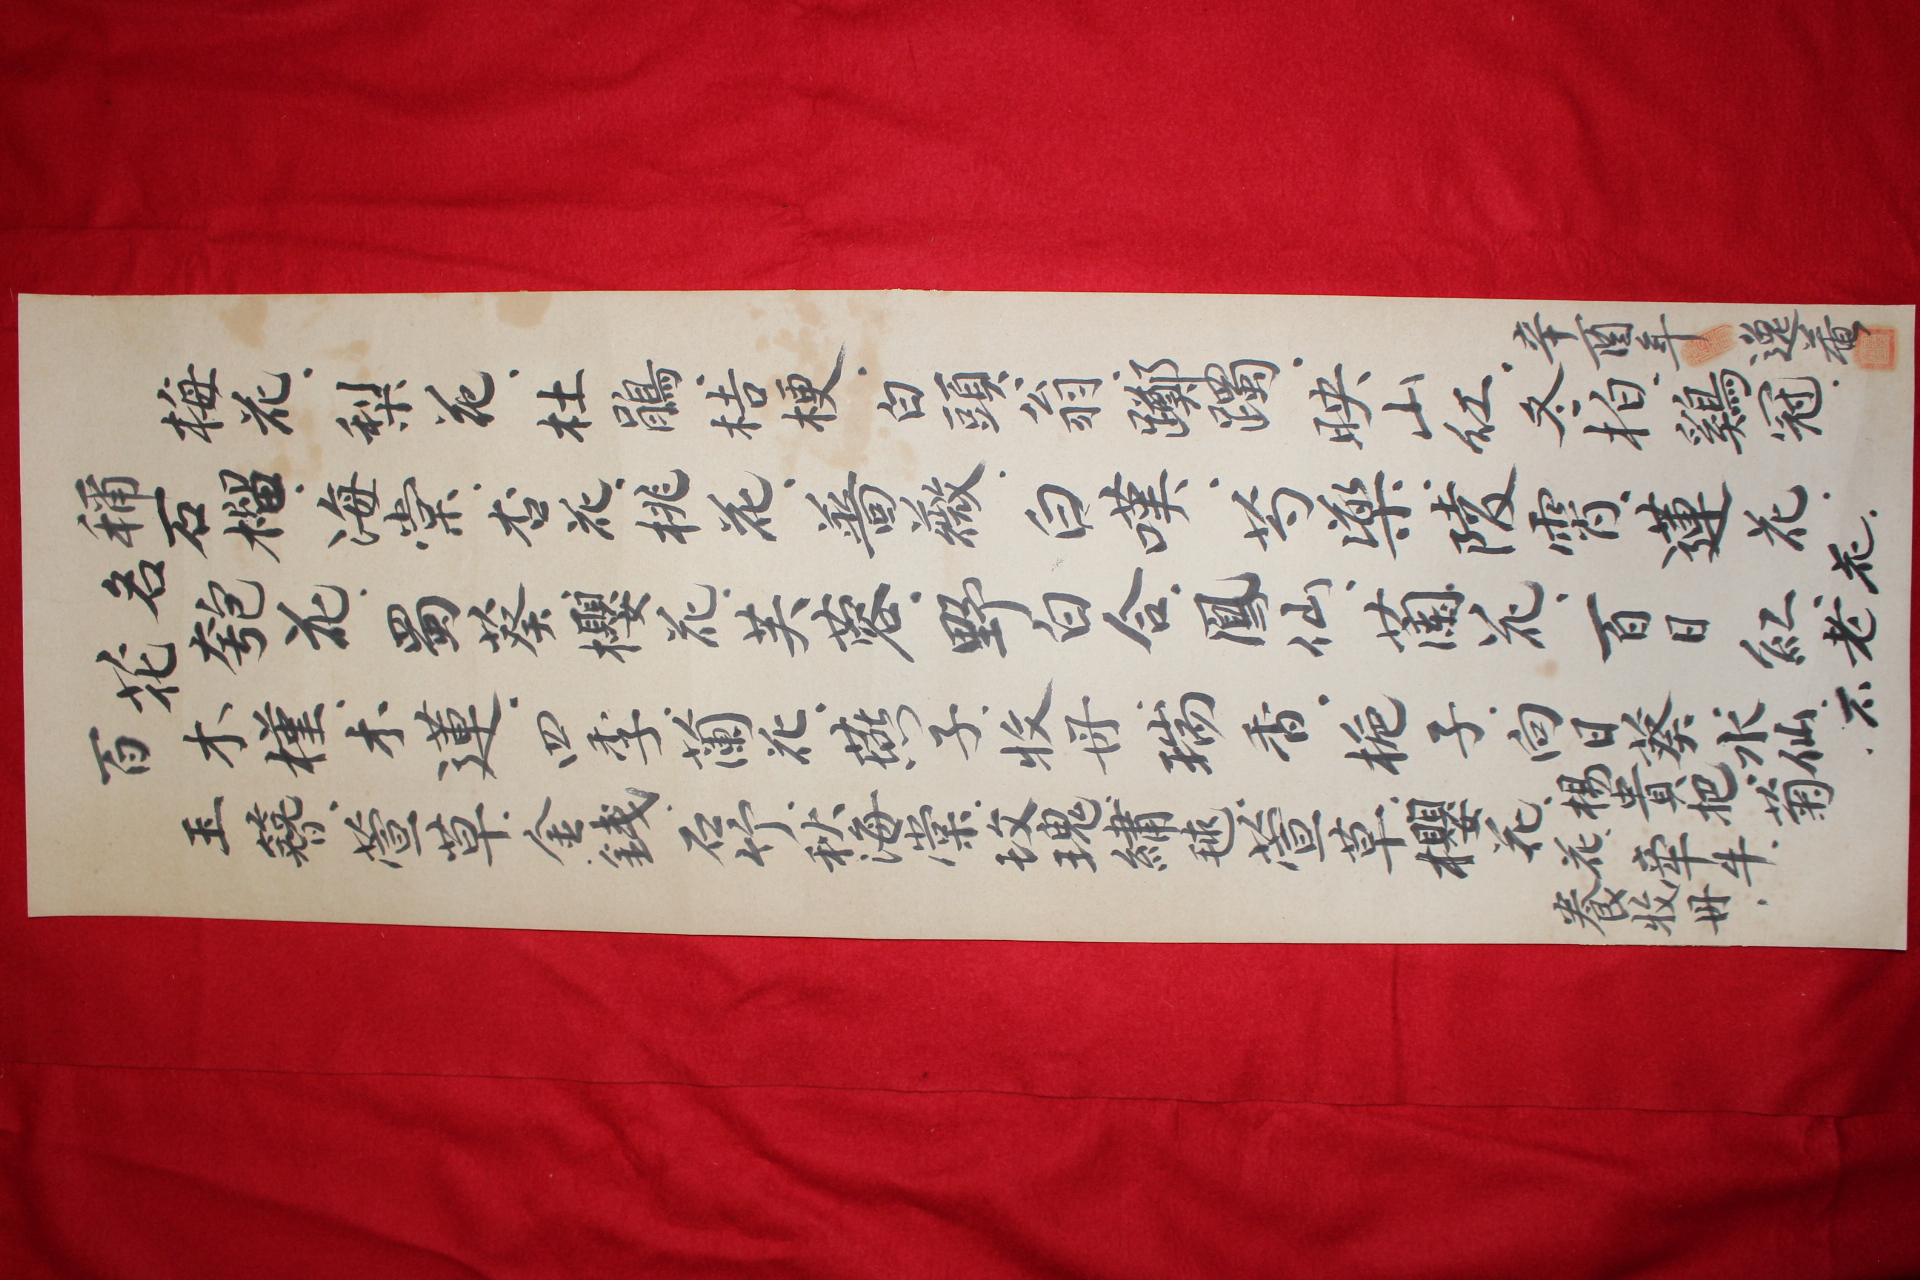 百花名稱
梅花.梨花.杜鵑.桔梗.白頭翁.躑躅.映山紅.冬柏.鷄冠.
石榴.海棠.杏花.桃花.薔薇.白嘆.芍藥.陵霄.蓮花.
匏花.蜀葵櫻花.芙蓉.野白合.鳳仙.蘭花.百日紅
木槿.木蓮.四季蘭花.燕子.牧丹.瑞香.梔子.向日葵水仙.
玉簪.萱草.金錢.石竹.秋海棠.玫瑰.繡毬.萱草.櫻花.楊貴妃菊
花.牽牛.
牧丹.
不老花.
辛酉年
逸菴